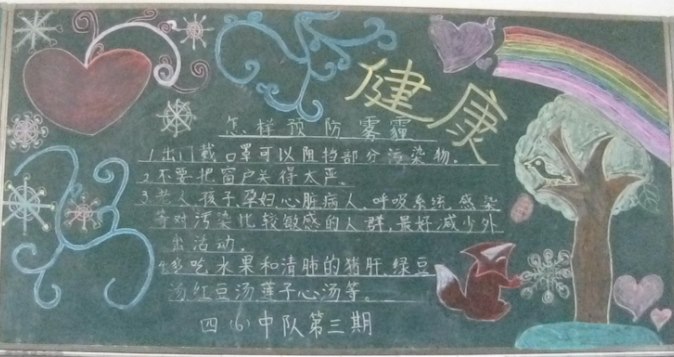 健康
怎样预防雾霾
1.出门戴口罩可以阻挡部分污染物。
2.不要把窗户关得太严。
3.老人孩子孕妇心脏病人、呼吸系统感染
等对污染比较敏感的人群,最好减少外
出活动。
吃水果和清肺的猪肝、绿豆
汤红豆汤莲子心汤等。
四(6)中队第三期